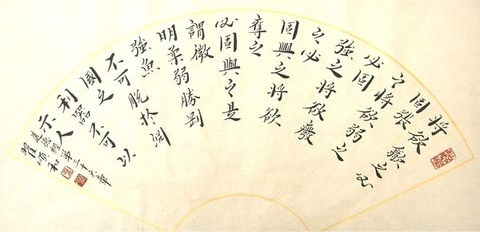 將欲歙之必
固張
之將欲弱之
必固
強之將欲廢
之必
固興之將欲
奪之
必固與之是
謂微
明柔弱勝剛
強魚
不可脫於淵
國之
利器不可以
示人
道德經第三十六章